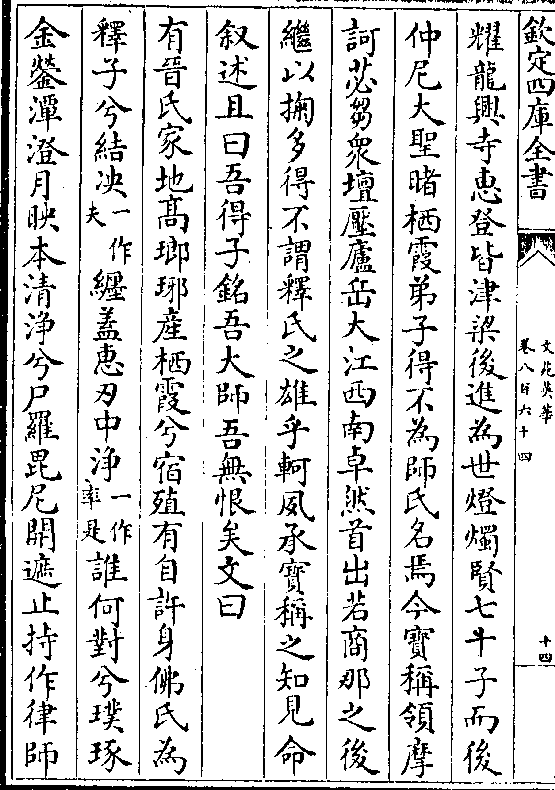 欽定四庫全書
文苑英華
卷八百六十四
十四
耀龍興寺惠登皆津梁後進為世燈燭賢七十子而後
仲尼大聖睹栖霞弟子得不為師氏名焉今寶稱領摩
訶苾芻衆壇壓廬岳大江西南卓然首出若商那之後
繼以掬多得不謂釋氏之雄乎軻夙承寶稱之知見命
叙述且曰吾得子銘吾大師吾無恨矣文曰
有晉氏家地髙瑯琊産栖霞兮宿殖有自許身佛氏為
釋子兮結决一作夫纒葢惠刃中淨一作率是誰何對兮璞琢
金鎣潭澄月映本清淨兮尸羅毘尼開遮止持作律師